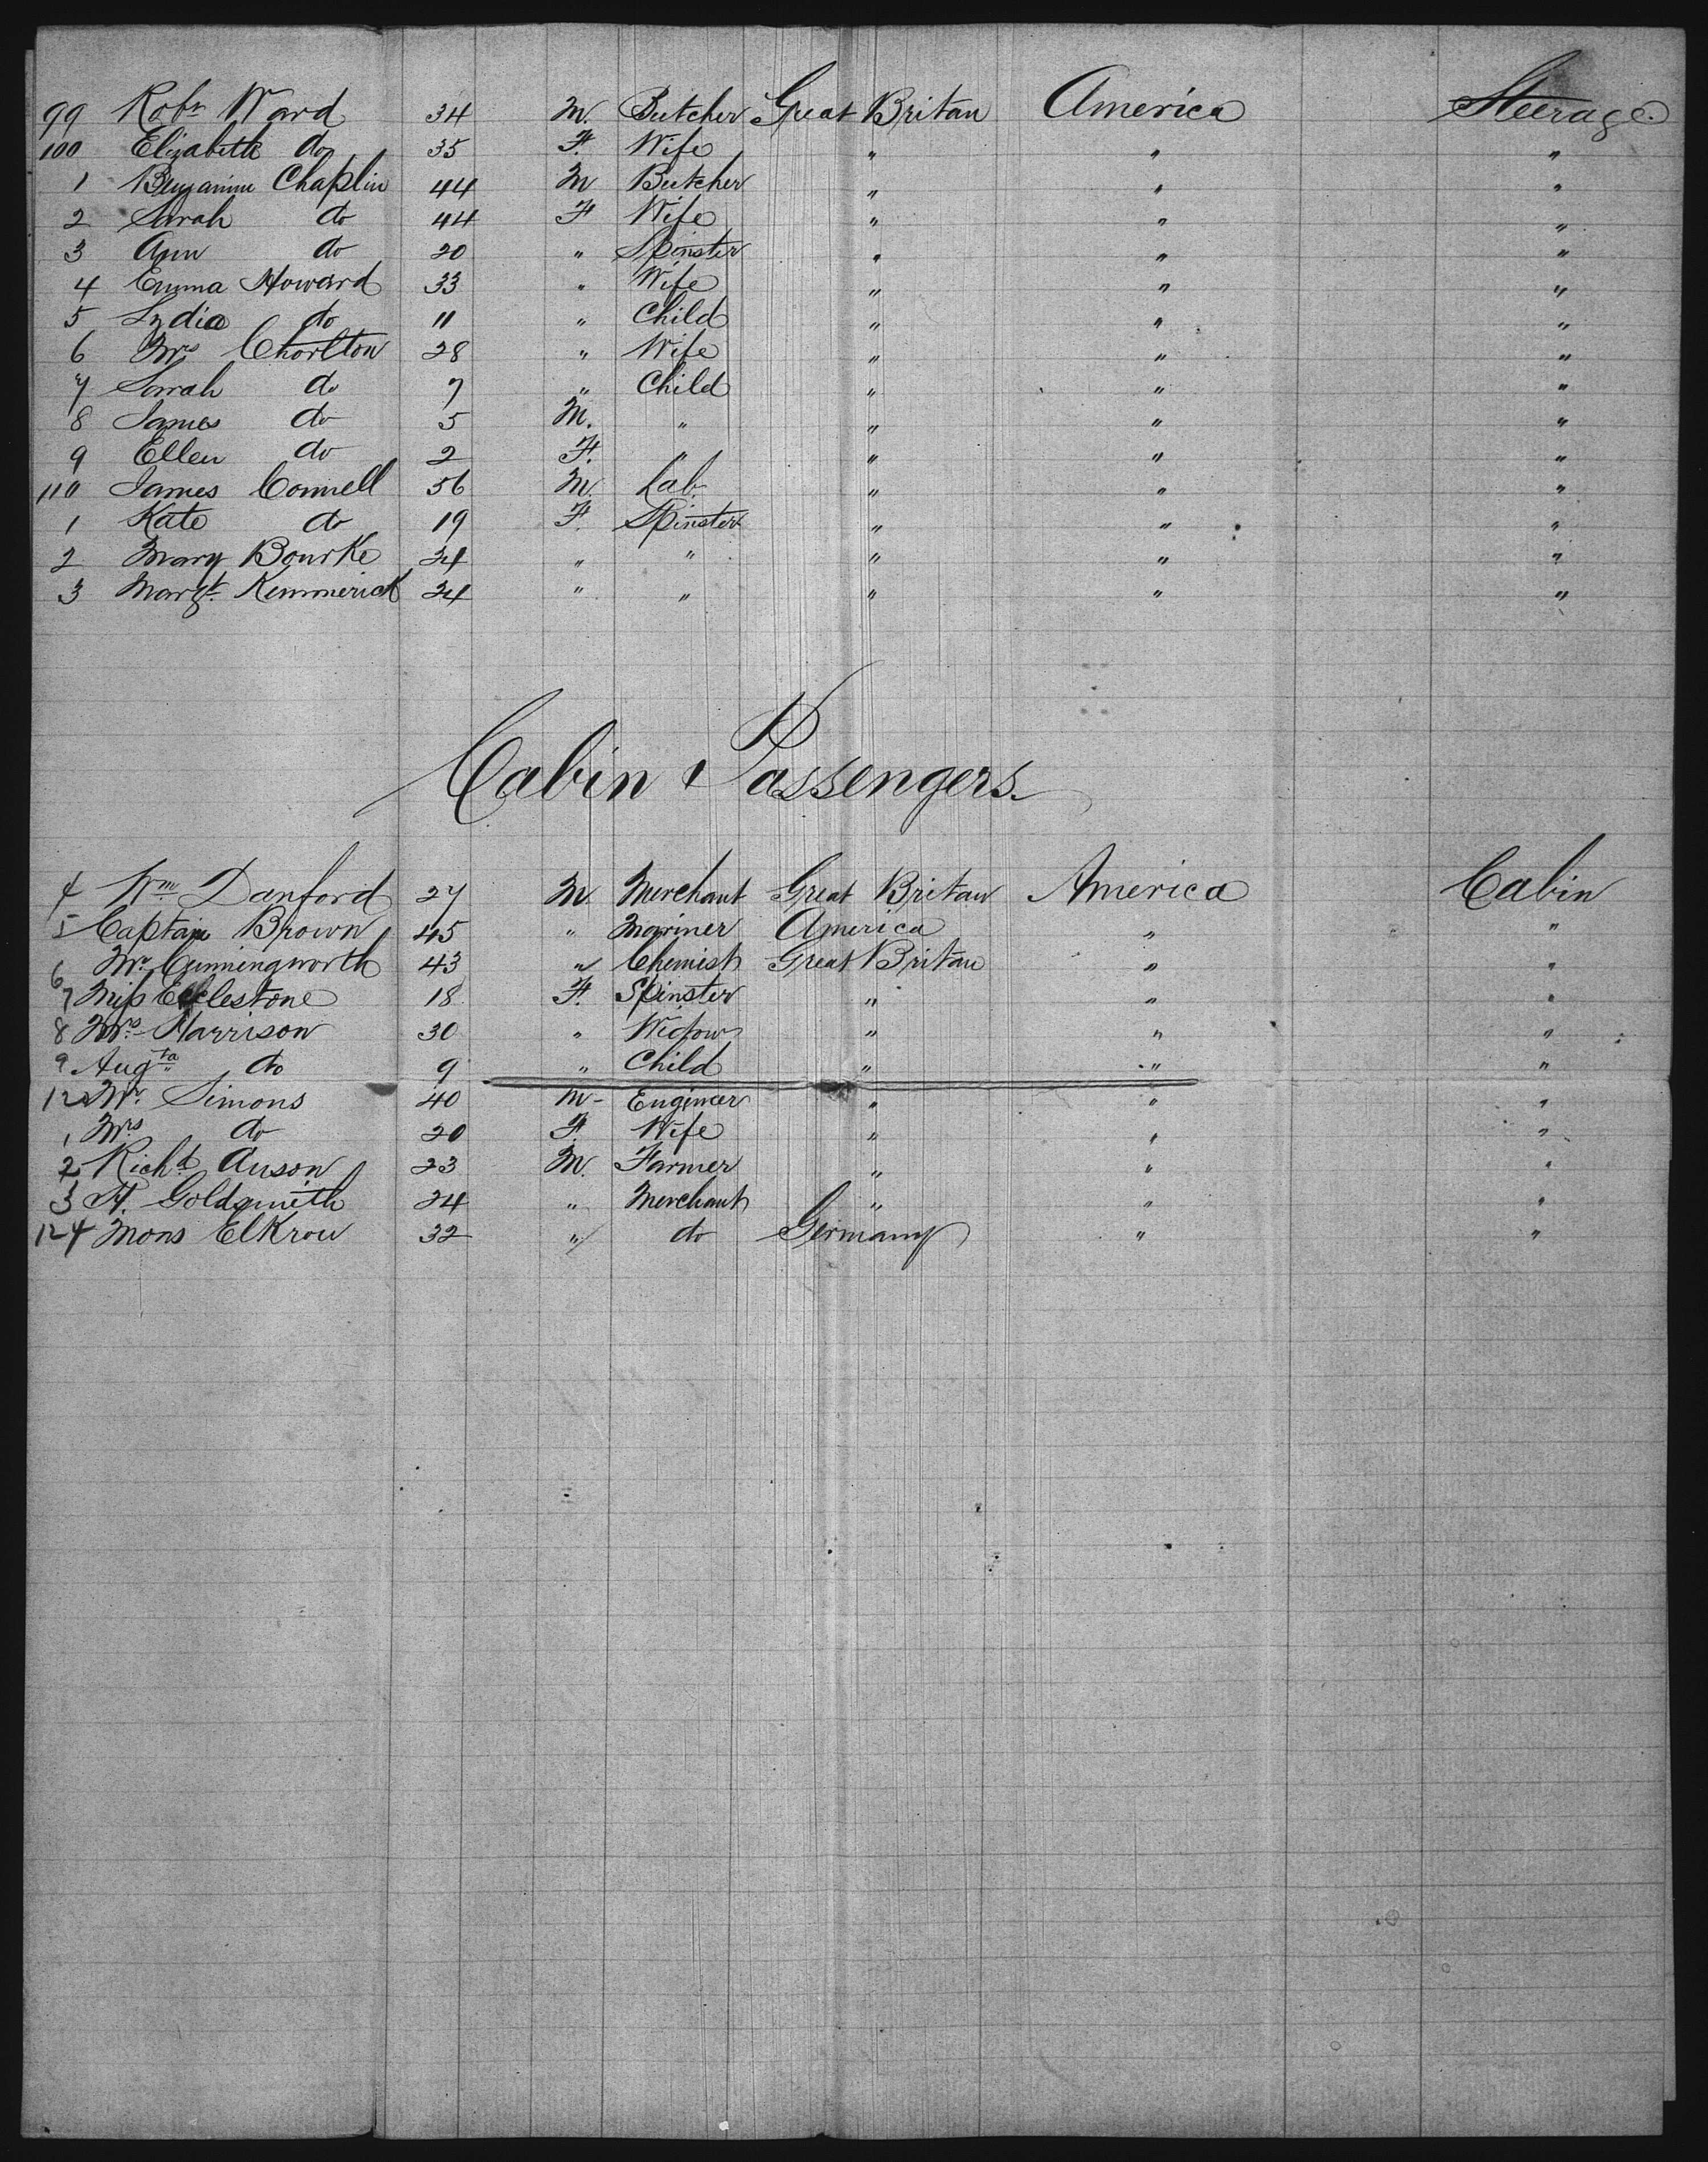 99 Robt Ward 34 M. Butcher Great Britan America Steerage.
100 Elizabeth do 35 F. Wife " " "
1 Benjamin Chaplin 44 M Butcher " " "
2 Sarah do 44 F Wife " " "
3 Ann do 20 " Spinster " " "
4 Emma Howard 33 " Wife " " "
5 Lydia do 11 " Child " " "
6 Mrs Chorlton 28 " Wife " " "
7 Sarah do 7 " Child " " "
8 James do 5 M. " " " "
9 Ellen do 2 F. " " " "
110 James Connell 56 M. Lab. " " "
1 Kate do 19 F. Spinster " " "
2 Mary Bourke 24 " " " " "
3 Margt. Kemmerick 24 " " " " "
Cabin Passengers.
4 Wm Danford 27 M. Merchant Great Britan America Cabin
5 Captain Brown 45 " Mariner America " "
6 Mr. Cunningworth 43 " Chemist Great Britan " "
7 Miss Ecclestone 18 F. Spinster " " "
8 Mrs. Harrison 30 " Widow " " "
9 Augta do 9 " Child " " "
120 Mr. Simons 40 M- Engineer " " "
1 Mrs do 20 F. Wife " " "
2 Richd Anson 23 M. Farmer " " "
3 H. Goldsmith 24 " Merchant " " "
124 Mons ElKrow 32 " do Germany " "